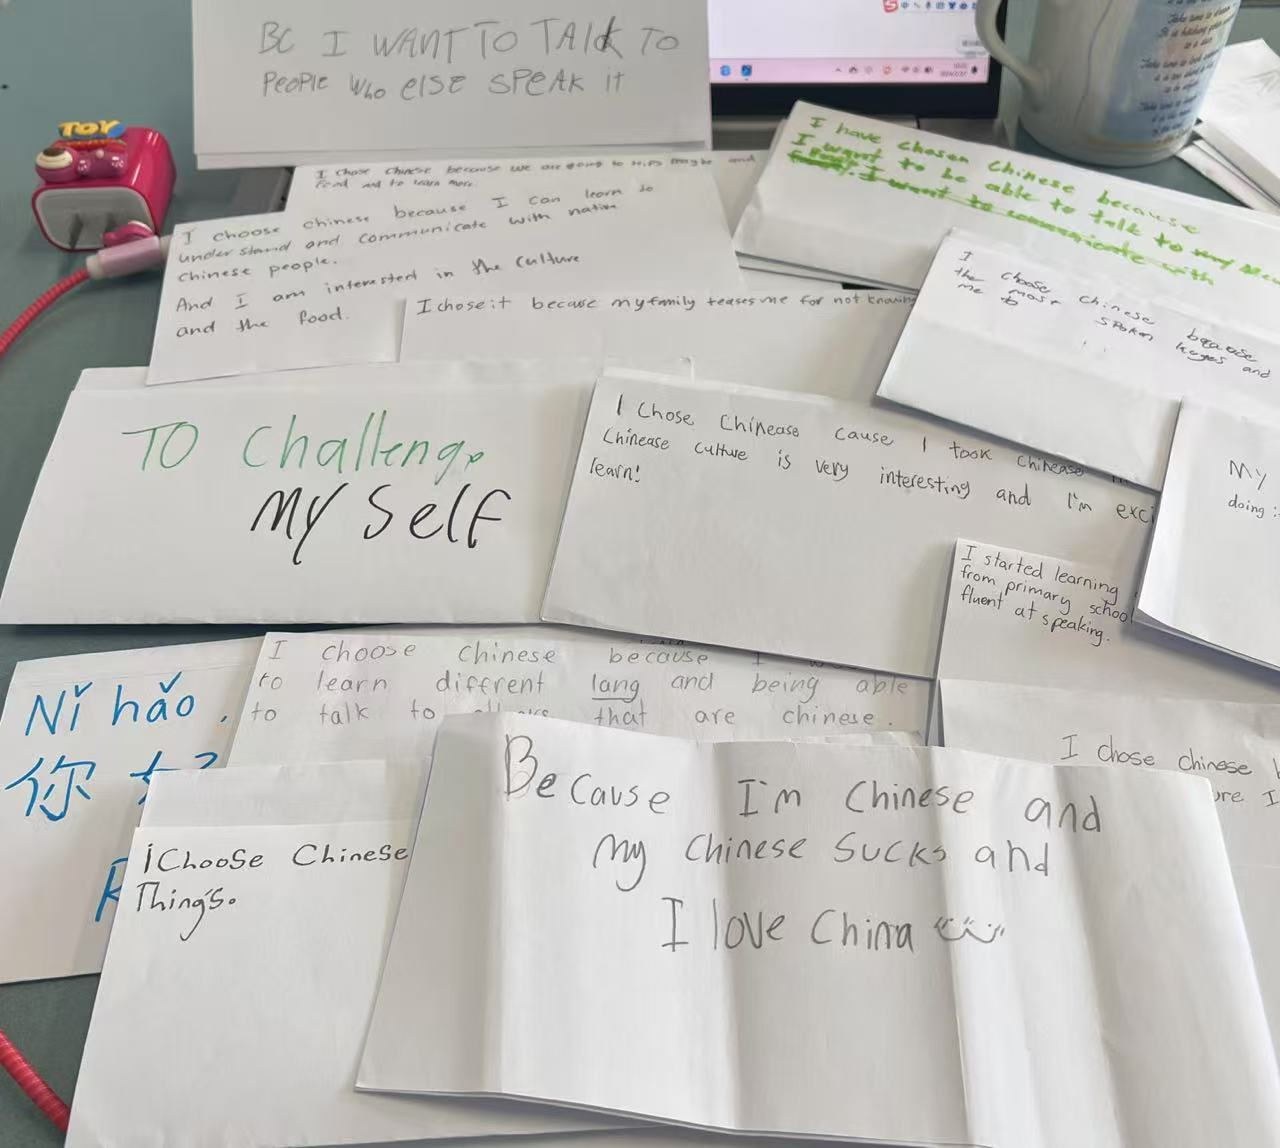 BC I WANT TO TALK TO
PEOPLE WHO ELSE SPEAK IT
TOY
I chose Chinese because we are going to trips maybe and
food and to learn more.
I choose chinese because I can learn to
understand and communicate with native
chinese people.
And I am interested in the culture
and the food.
I chose it because my family teases me for not knowing
I have chosen Chinese because
I want to be able to talk to my
I want to communicate with
I choose Chinese because
the most spoken
me to
and
TO Challenge
MY Self
I Chose Chinease cause I took chinease
Chinease culture is very interesting and I'm exci
learn!
My
doing :
I started learning
from primary schoo
fluent at speaking.
Nǐ hǎo.
你 好
I choose chinese because I
to learn diffrent lang and being able
to talk to that are chinese.
I chose chinese
ure I
i Choose Chinese
Thing's.
Because I'm Chinese and
my Chinese sucks and
I love China